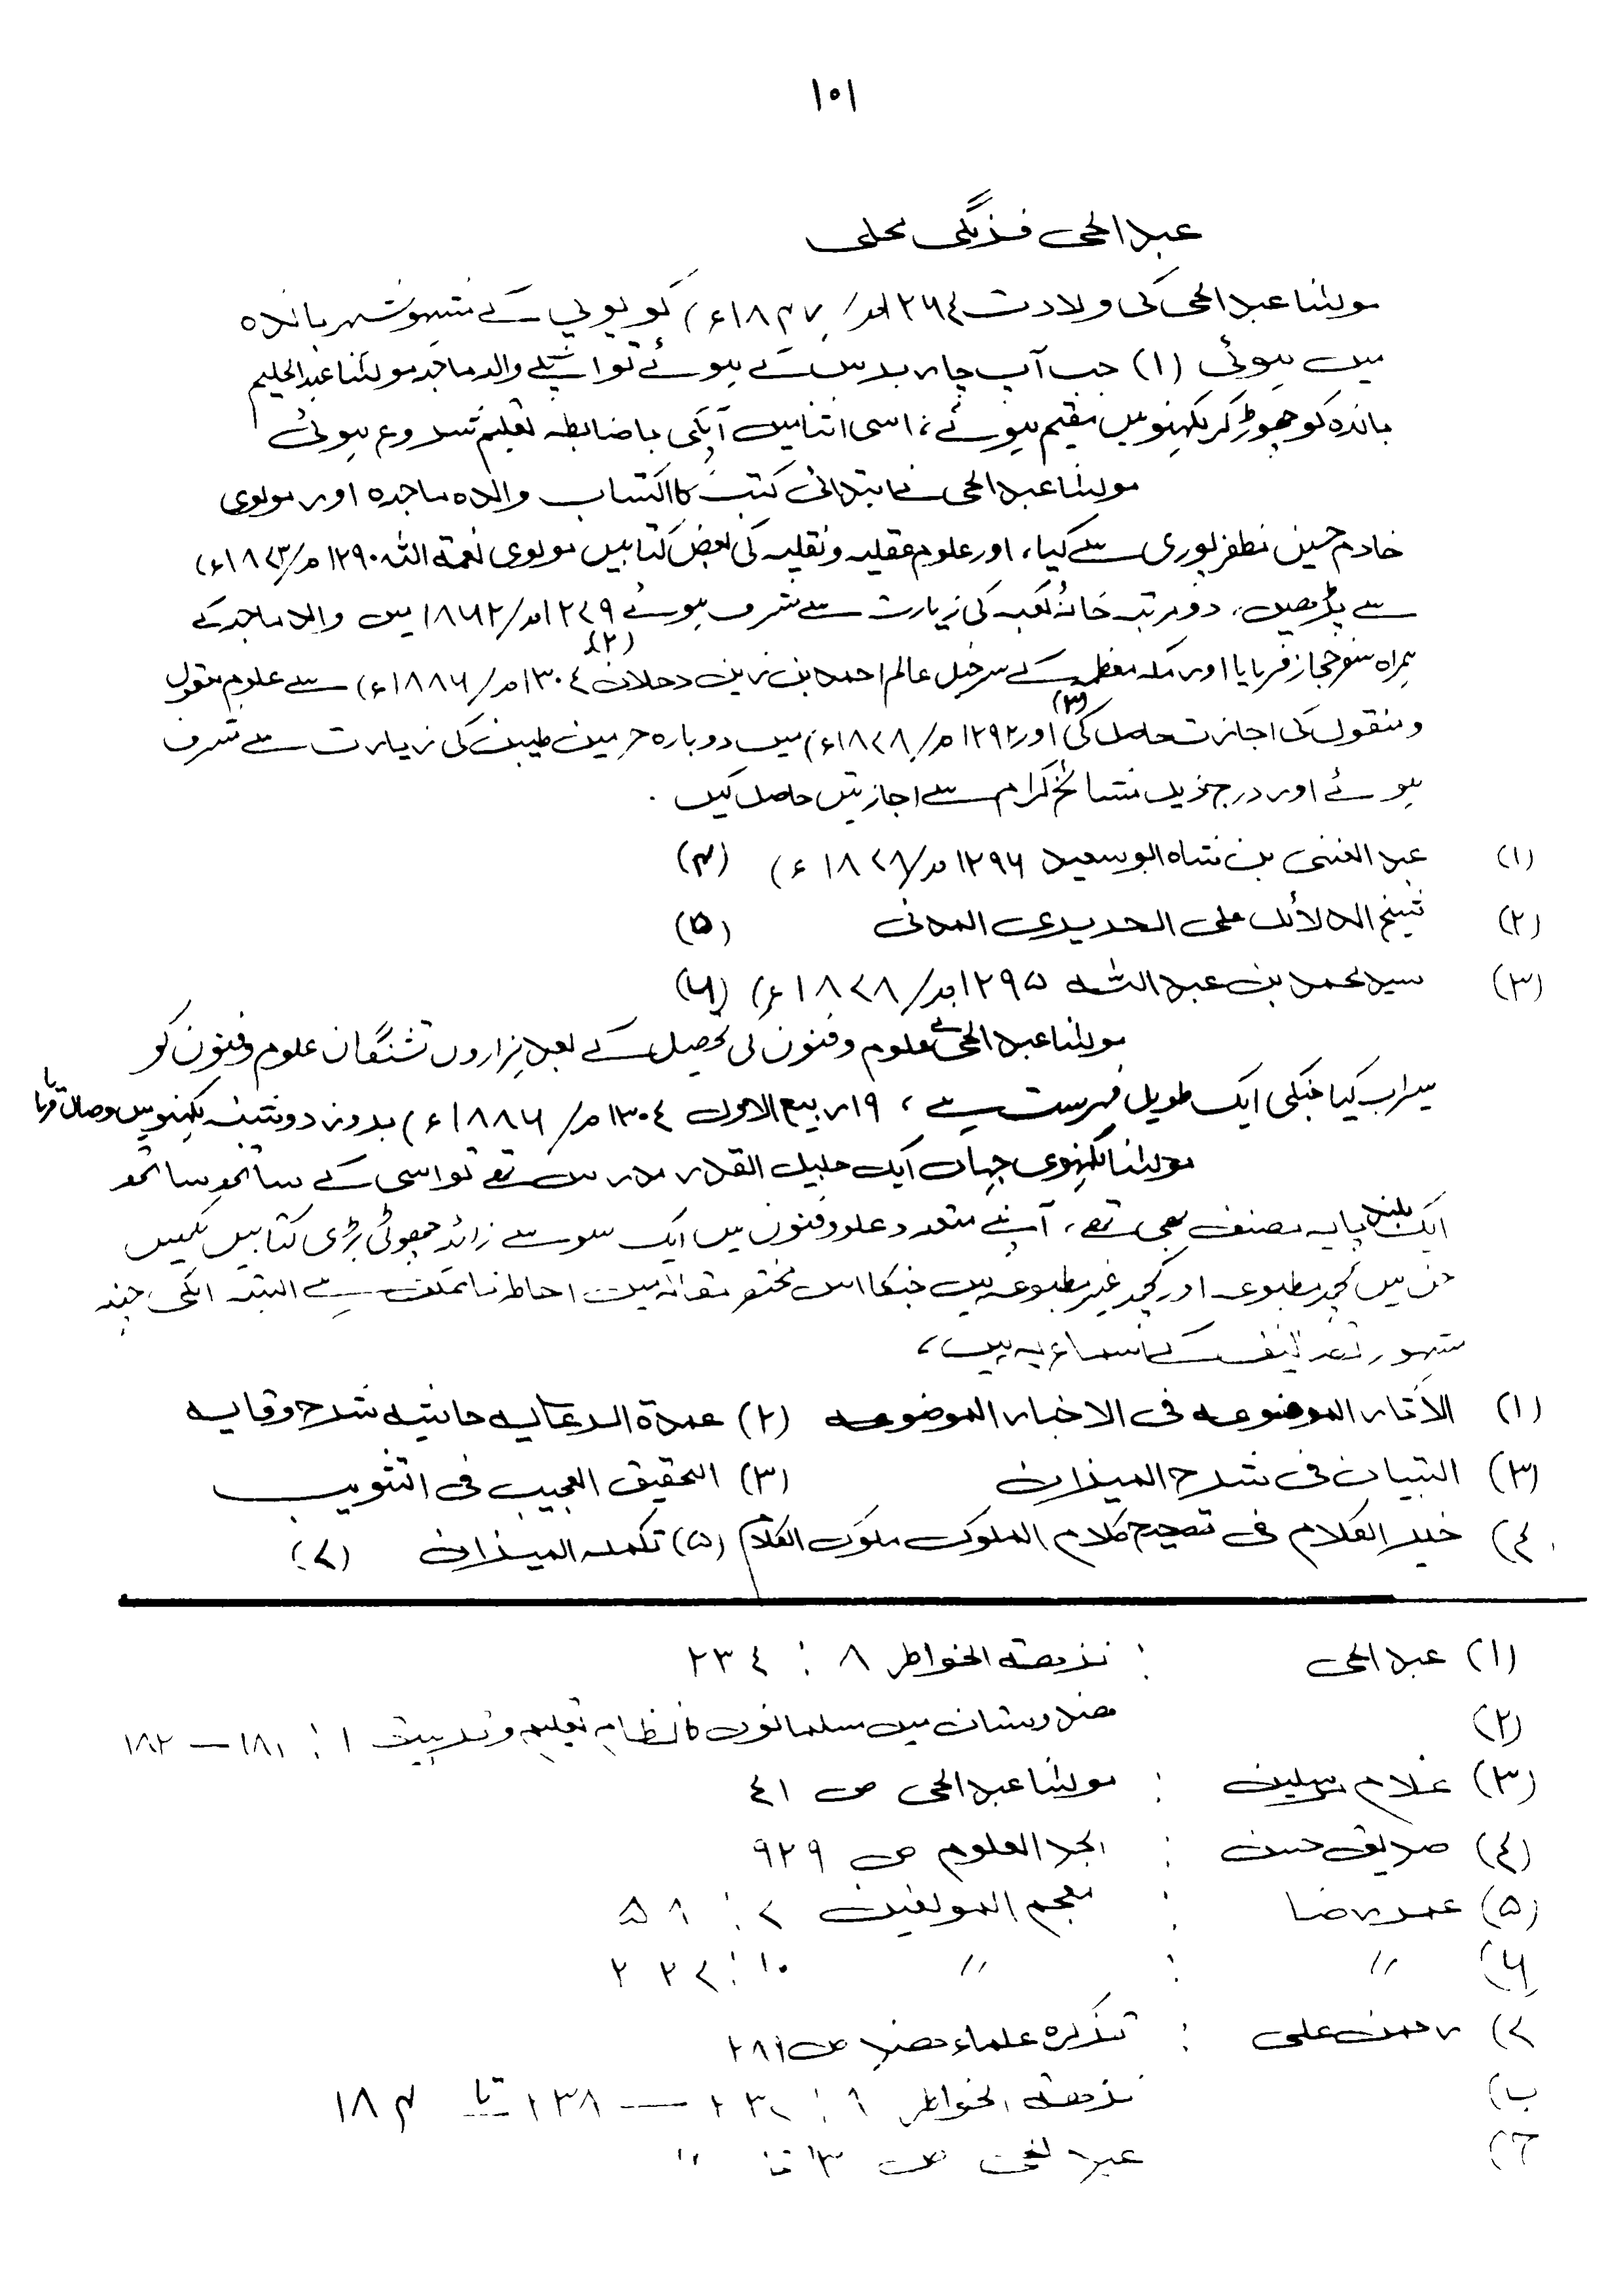 ١٠١
عبدالحی فرنگی محلی
مولٰنا عبدالحی کی ولادت ١٢٦٤ھ/١٨۴٧ء) کو یوپی کے مشہور شہر باندہ
میں ہوئی (١) جب آپ چار برس کے ہوئے تو اپنے والد ماجد مولٰنا عبدالحلیم
باندہ کو چھوڑ کر لکھنو میں مقیم ہوئے، اسی اثنا میں آپکی باضابطہ تعلیم شروع ہوئی
مولٰنا عبدالحی نے ابتدائی کتب کا اکتساب والدہ ماجدہ اور مولوی
خادم حسین مظفرپوری سے کیا، اور علوم عقلیہ و نقلیہ کی بعض کتابیں مولوی نعمة اللہ ١٢٩٠ھ/١٨٧٣ء)
سے پڑھیں، دو مرتبہ خانۂ کعبہ کی زیارت سے مشرف ہوئے ١٢٧٩ھ/١٨٦٢ میں والد ماجد کے
ہمراہ سفر حجاز فرمایا اور مکہ معظمہ کے سرخیل عالم احمد بن زین دحلان (٢) ١٣٠٤ھ/١٨٨٦ء) سے علوم معقول
و منقول کی اجازت حاصل کی (٣) اور ١٢٩٢ھ/١٨٧٨ء) میں دوبارہ حرمین طیبین کی زیارت سے مشرف
ہوئے اور درج ذیل مشائخ کرام سے اجازتیں حاصل کیں ۔
(١) عبدالغنی بن شاہ ابو سعید ١٢٩٦ھ/١٨٧٨ء) (۴)
(٢) شیخ الدلائل علی الحریری المدنی (۵)
(٣) سید محمد بن عبد اللہ ١٢٩۵ھ/١٨٧٨ء) (٦)
مولٰنا عبدالحی نے علوم و فنون کی تحصیل کے بعد ہزاروں تشنگان علوم و فنون کو
سیراب کیا جنکی ایک طویل فہرست ہے، ١٩ ربیع الاول ١٣٠٤ھ/١٨٨٦ء) بروز دوشنبہ لکھنو میں وصال فرمایا
مولٰنا لکھنوی جہاں ایک جلیل القدر مدرس تھے تو اسی کے ساتھ ساتھ
ایک بلند پایہ مصنف بھی تھے، آپنے متعدد علوم و فنون میں ایک سو سے زائد چھوٹی بڑی کتابیں لکھیں
جن میں کچھ مطبوعہ اور کچھ غیر مطبوعہ ہیں جنکا اس مختصر مقالہ میں احاطہ ناممکن ہے البتہ انکی چند
مشہور تصانیف کے اسماء یہ ہیں،
(١) الآثار الموضوعہ فی الاخبار الموضوعہ (٢) عمدة الرعایہ حاشیہ شرح وقایہ
(٣) التبیان فی شرح المیزان (٣) التحقیق العجیب فی التثویب
٤) خیر الکلام فی تصحیح کلام الملوک ملوک الکلام (۵) تکملہ المیزان (٧)
(١) عبدالحی : نزھة الخواطر ٨ : ٢٣٤
(٢) ھندوستان میں مسلمانوں کا نظام تعلیم و تربیت ١ : ١٨١ – ١٨٢
(٣) غلام مرسلین : مولٰنا عبدالحی ص ٤١
(٤) صدیق حسن : ابجد العلوم ص ٩٢٩
(۵) عمر رضا : معجم المولفین ٧ : ۵٨
(٦) // : // ١٠ : ٢٢٧
٧) رحمن علی : تذکرہ علماء ھند ص ٢٨١
ب) نزھة الخواطر
ج) عبدالحی ص